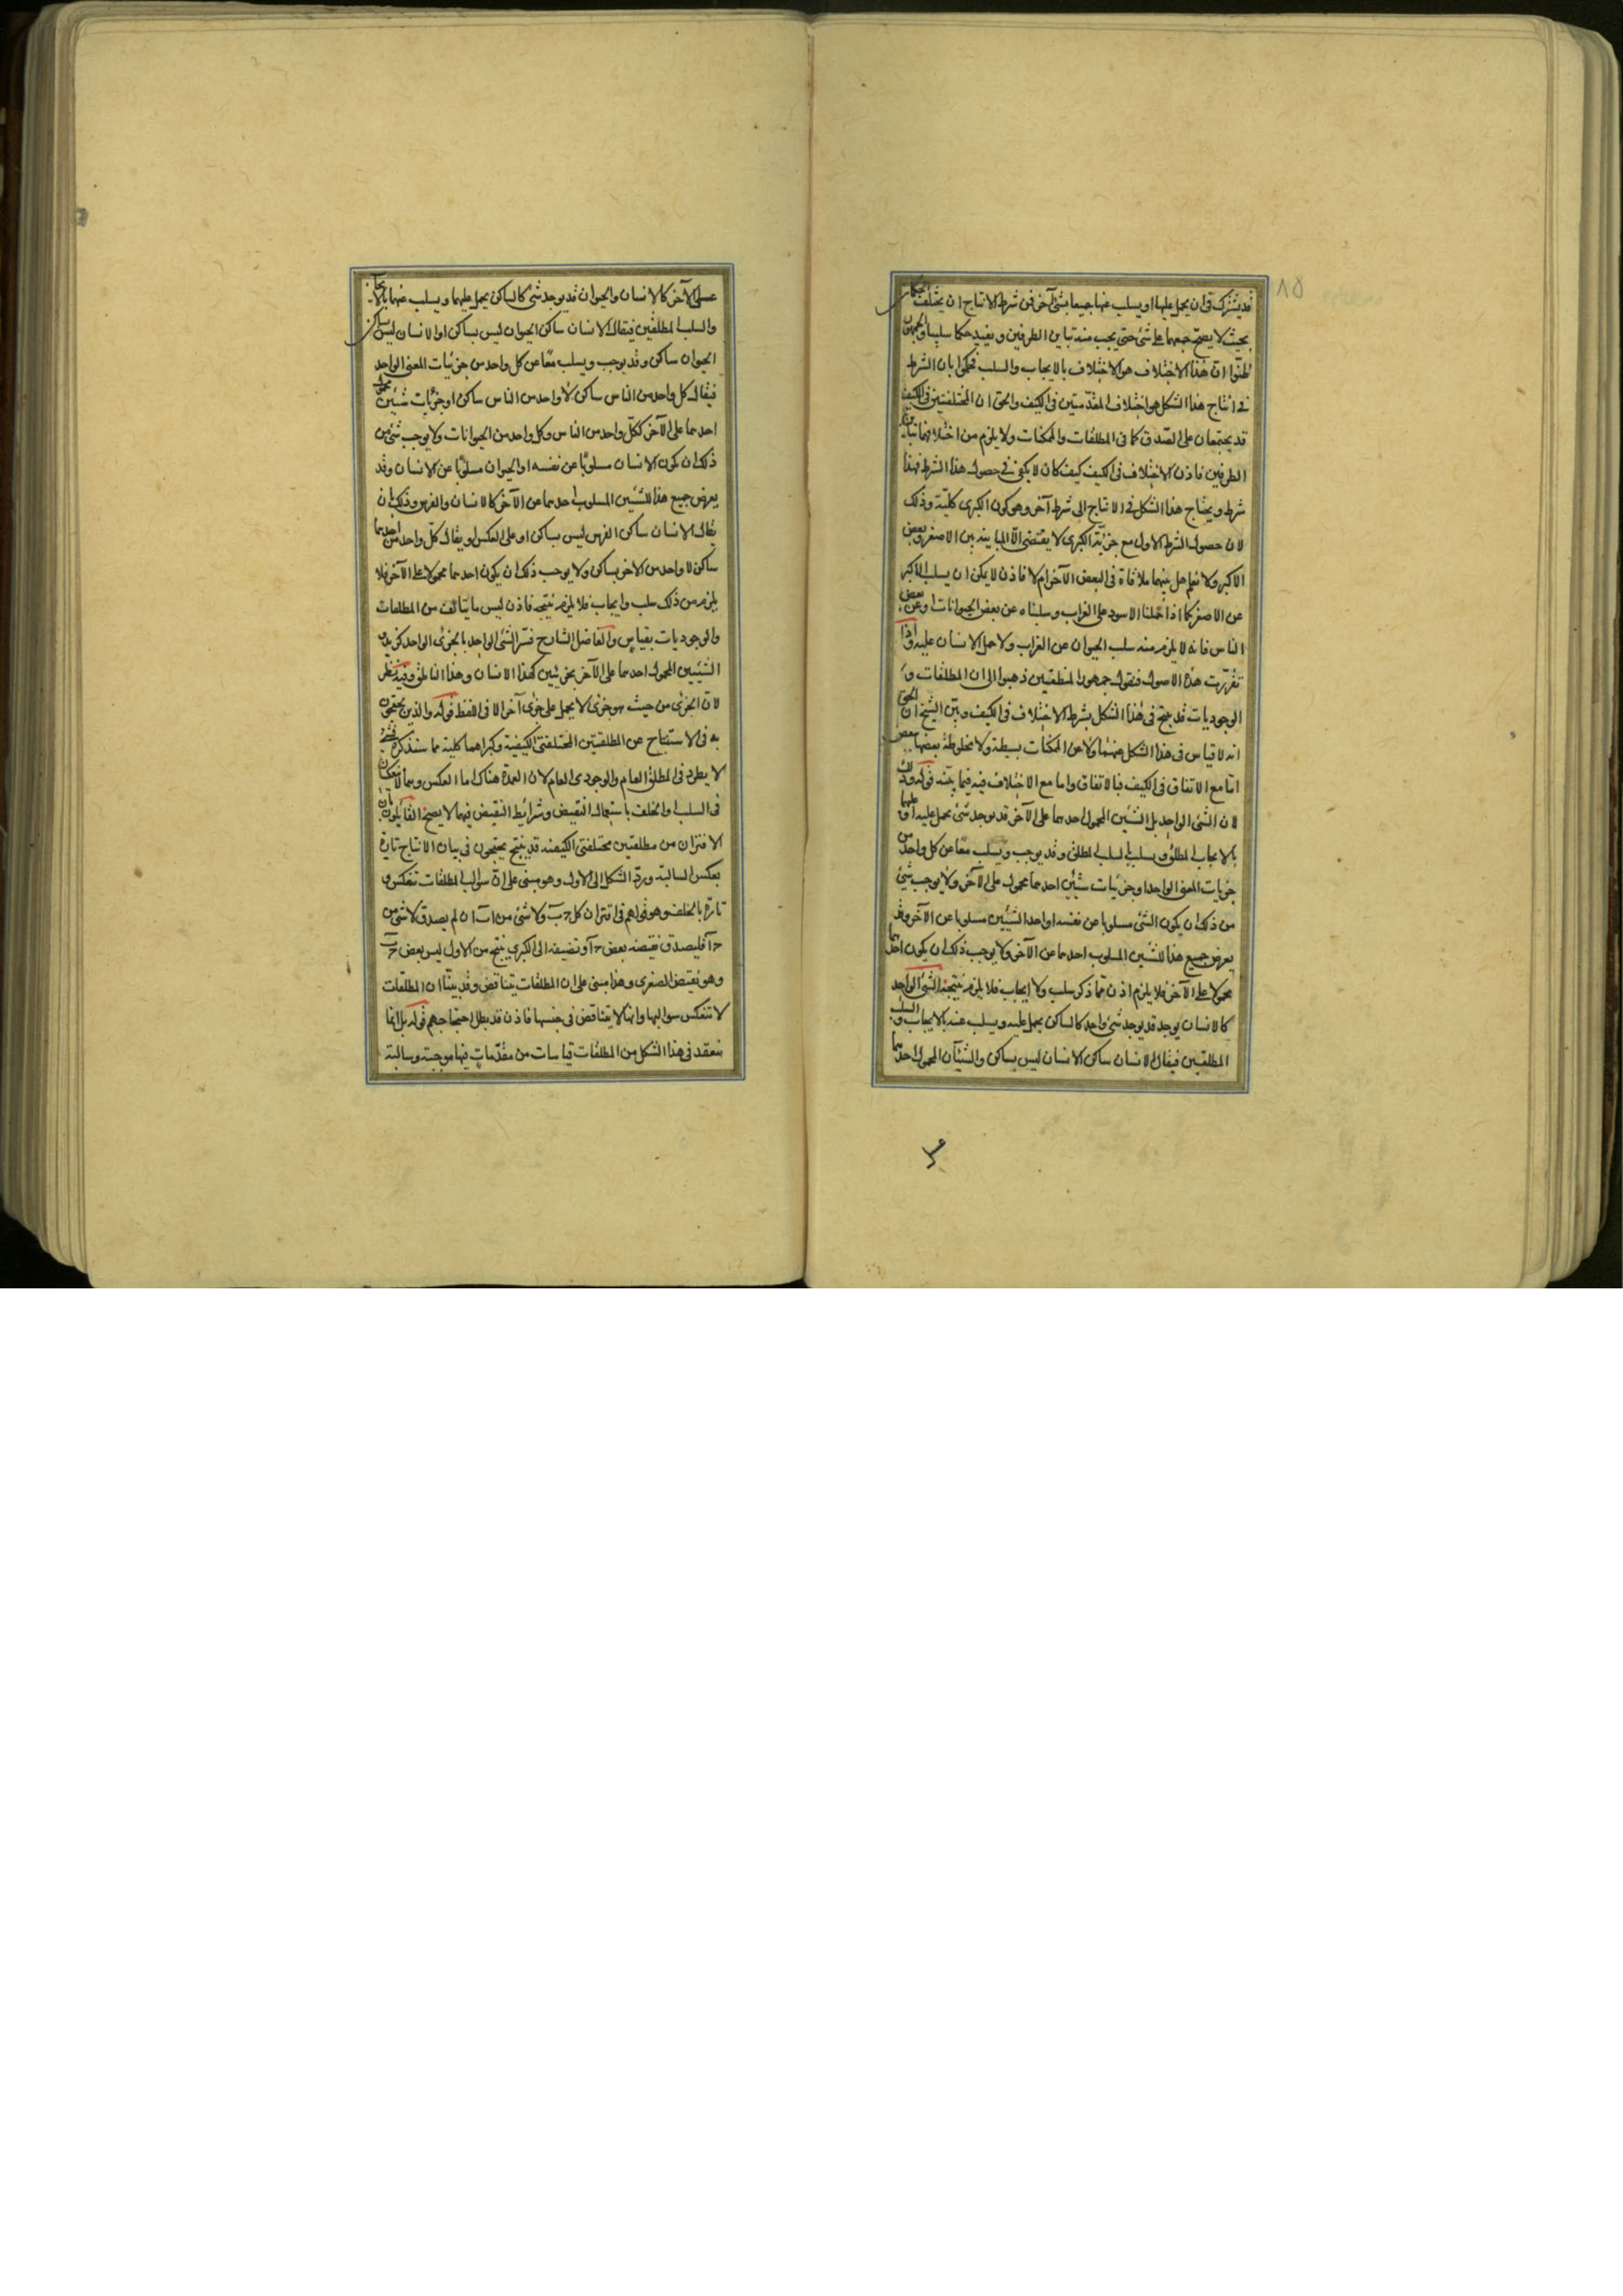 قد يشترك في ان يحمل عليها او يسلب عنها جميعا شئ آخر فمن شرط الانتاج ان يختلف الحكمان
بحيث لا يصح جمعهما على شئ حتى يجب منه تباين الطرفين و يفيد حكما سلبيا والجمهور
ظنوا ان هذا الاختلاف هو الاختلاف بالايجاب والسلب فحكموا بان الشرط
في انتاج هذا الشكل هو اختلاف المقدمتين في الكيف والحق ان المختلفتين في الكيف
قد يجتمعان على الصدق كما في المطلقات والممكنات ولا يلزم من اختلافهما تباين
الطرفين فاذن الاختلاف في الكيف كيف كان لا يكفي في حصول هذا الشرط فهذا
شرط ويحتاج هذا الشكل في الانتاج الى شرط آخر وهو كون الكبرى كلية وذلك
لان حصول الشرط الاول مع جزئية الكبرى لا يقتضي الا المباينة بين الاصغر وبعض
الاكبر ولا نعلم هل بينهما ملاقاة في البعض الآخر ام لا فاذن لا يمكن ان يسلب الاكبر
عن الاصغر كما اذا حملنا الاسود على الغراب وسلبناه عن بعض الحيوانات او عن بعض
الناس فانه لا يلزم منه سلب الحيوان عن الغراب ولا حمل الانسان عليه واذا
تقررت هذه الاصول فنقول جمهور المنطقيين ذهبوا الى ان المطلقات و
الوجوديات قد ينتج في هذا الشكل بشرط الاختلاف في الكيف وبين الشيخ ان الحق
انه لا قياس في هذا الشكل عنهما ولا عن الممكنات بسيطة ولا مخلوطة بعضها ببعض
اما مع الاتفاق في الكيف فبالاتفاق واما مع الاختلاف فيه فيما بينه قوله وذلك
لان الشئ الواحد بل الشيئين المحمول احدهما على الآخر قد يوجد شئ يحمل عليه او عليهما
بالايجاب المطلق ويسلب بالسلب المطلق وقد يوجب ويسلب معا عن كل واحد من
جزئيات المعنى الواحد او جزئيات شيئين احدهما محمول على الآخر ولا يوجب شئ
من ذلك ان يكون الشئ مسلوبا عن نفسه او احد الشيئين مسلوبا عن الآخر وقد
يعرض جميع هذا للشيئين المسلوب احدهما عن الآخر ولا يوجب ذلك ان يكون احدهما
محمولا على الآخر فلا يلزم اذن مما ذكر سلب ولا ايجاب فلا يلزم نتيجة الشئ الواحد
كالانسان يوجد قد يوجد شئ واحد كالساكن يحمل عليه ويسلب عنه بالايجاب والسلب
المطلقين فيقال الانسان ساكن الانسان ليس بساكن والشيئان المحمول احدهما
على الآخر كالانسان والحيوان قد يوجد شئ كالساكن يحمل عليهما ويسلب عنهما بالايجاب
والسلب المطلقين فيقال الانسان ساكن الحيوان ليس بساكن او الانسان ليس بساكن
الحيوان ساكن وقد يوجب ويسلب معا عن كل واحد من جزئيات المعنى الواحد
فيقال كل واحد من الناس ساكن لا واحد من الناس ساكن او جزئيات شيئين محمول
احدهما على الآخر ككل واحد من الناس وكل واحد من الحيوانات ولا يوجب شئ من
ذلك ان يكون الانسان مسلوبا عن نفسه او الحيوان مسلوبا عن الانسان وقد
يعرض جميع هذا للشيئين المسلوب احدهما عن الآخر كالانسان والفرس وذلك بان
يقال الانسان ساكن الفرس ليس بساكن او على العكس او يقال كل واحد من احدهما
ساكن لا واحد من الاخر بساكن ولا يوجب ذلك ان يكون احدهما محمولا على الآخر فلا
يلزم من ذلك سلب وايجاب فلا يلزم نتيجة فاذن ليس ما يتألف من المطلقات
والوجوديات بقياس والفاضل الشارح فسر الشئ الواحد بالجزئى الواحد كزيد و
الشيئين المحمول احدهما على الآخر بجزئيين كهذا الانسان وهذا الناطق وفيه نظر
لان الجزئى من حيث هو جزئى لا يحمل على جزئى آخر الا في اللفظ قوله والذين يحتجون
به في الاستنتاج عن المطلقتين المختلفتى الكيفية وكبراهما كلية مما سنذكره فشئ
لا يطرد في المطلق العام والوجودى العام لان العمدة هناك اما العكس وهما لا ينعكسان
في السلب او الخلف باستعمال النقيض وشرائط النقيض فيهما لا يصح القائلون بان
الاقتران من مطلقتين مختلفتى الكيفية قد ينتج يحتجون في بيان الانتاج تارة
بعكس السالبة ورد الشكل الى الاول وهو مبنى على ان سوالب المطلقات تنعكس و
تارة بالخلف وهو قولهم في اقتران كل ج ب ولا شئ من ا ب ان لم يصدق لا شئ من
ج ا فليصدق نقيضه بعض ج ا ونضيفه الى الكبرى ينتج من الاول ليس بعض ج ب
وهو نقيض الصغرى وهذا مبنى على ان المطلقات يتناقض وقد بينا ان المطلقات
لا تنعكس سوالبها وانها لا يتناقض في جنسها فاذن قد بطل احتجاجهم قوله بل انما
ينعقد في هذا الشكل من المطلقات قياسات من مقدمات فيها موجبة وسالبة